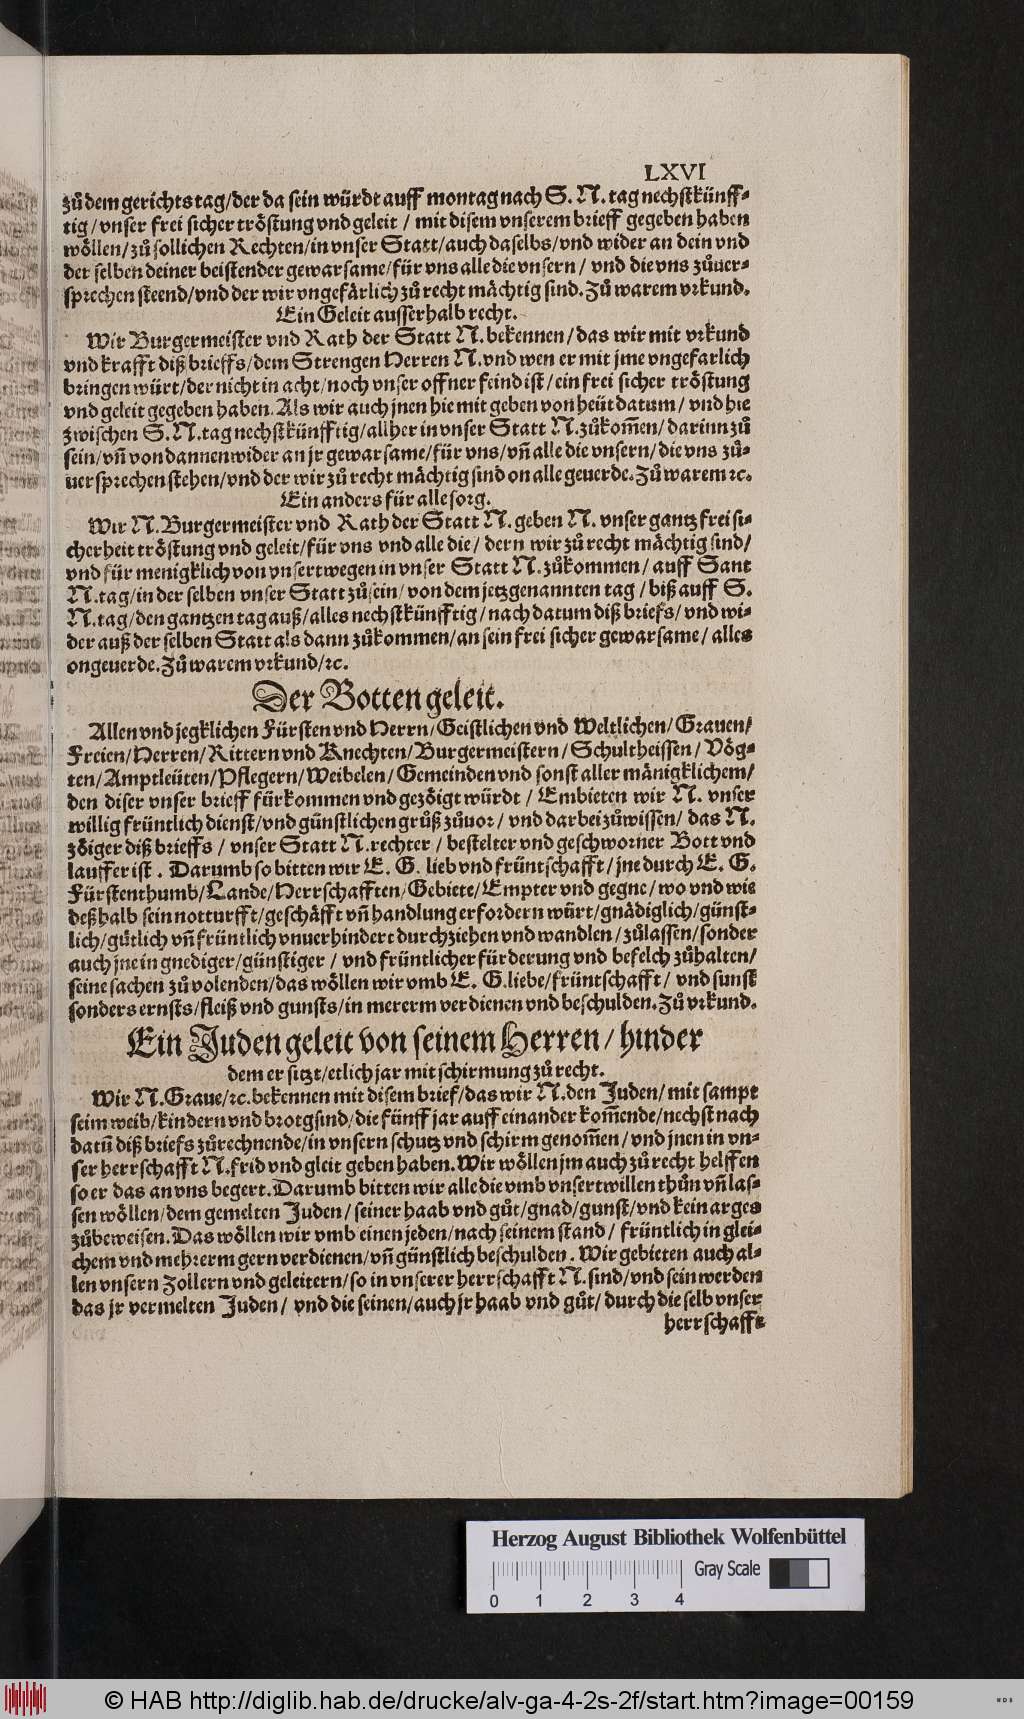 LXVI
zů dem gerichts tag/der da sein würdt auff montag nach S. N. tag nechstkünff-
tig/vnser frei sicher tröstung vnd geleit / mit disem vnserem brieff gegeben haben
wöllen/zů sollichen Rechten/in vnser Statt/auch daselbs/vnd wider an dein vnd
der selben deiner beistender gewarsame/für vns alle die vnsern/ vnd die vns zůuer-
sprechen steend/vnd der wir vngefärlich zů recht mächtig sind. Zů warem vrkund.
Ein Geleit ausserhalb recht.
Wir Burgermeister vnd Rath der Statt N. bekennen/das wir mit vrkund
vnd krafft diß brieffs/dem Strengen Herren N. vnd wen er mit jme vngefarlich
bringen würt/der nicht in acht/noch vnser offner feind ist/ein frei sicher tröstung
vnd geleit gegeben haben. Als wir auch jnen hie mit geben von heüt datum/ vnd hie
zwischen S. N. tag nechstkünfftig/allher in vnser Statt N. zůkom̃en/ darinn zů
sein/vñ von dannen wider an jr gewarsame/für vns/vñ alle die vnsern/die vns zů-
uersprechen stehen/vnd der wir zů recht mächtig sind on alle geuerde. Zů warem ꝛc.
Ein anders für alle sorg.
Wir N. Burgermeister vnd Rath der Statt N. geben N. vnser gantz frei si-
cherheit tröstung vnd geleit/für vns vnd alle die/ dern wir zů recht mächtig sind/
vnd für menigklich von vnsert wegen in vnser Statt N. zůkommen/ auff Sant
N. tag/in der selben vnser Statt zů sein/ von dem jetzgenannten tag / biß auff S.
N. tag/den gantzen tag auß/alles nechstkünfftig/nach datum diß briefs/vnd wi-
der auß der selben Statt als dann zůkommen/an sein frei sicher gewarsame/ alles
ongeuerde. Zů warem vrkund/ꝛc.
Der Botten geleit.
Allen vnd jegklichen Fürsten vnd Herrn/Geistlichen vnd Weltlichen/Grauen/
Freien/Herren/Rittern vnd Knechten/Burgermeistern/Schultheissen/Vög-
ten/Amptleüten/Pflegern/Weibelen/Gemeinden vnd sonst aller mänigklichem/
den diser vnser brieff fürkommen vnd gezöigt würdt / Embieten wir N. vnser
willig früntlich dienst/vnd günstlichen grůß zůuor/ vnd darbei zůwissen/ das N.
zöiger diß brieffs / vnser Statt N. rechter / bestelter vnd geschworner Bott vnd
lauffer ist . Darumb so bitten wir E. G. lieb vnd früntschafft/jne durch E. G.
Fürstenthumb/Lande/Herrschafften/Gebiete/Empter vnd gegne/wo vnd wie
deßhalb sein notturfft/geschäfft vñ handlung erfordern würt/gnädiglich/günst-
lich/gütlich vñ früntlich vnuerhindert durchziehen vnd wandlen/zůlassen/sonder
auch jne in gnediger/günstiger / vnd früntlicher fürderung vnd befelch zůhalten/
seine sachen zů volenden/das wöllen wir vmb E. G. liebe/früntschafft/ vnd sunst
sonders ernsts/fleiß vnd gunsts/in mererm verdienen vnd beschulden. Zů vrkund.
Ein Juden geleit von seinem Herren/ hinder
dem er sitzt/etlich jar mit schirmung zů recht.
Wir N. Graue/ꝛc. bekennen mit disem brief/das wir N. den Juden/ mit sampt
seim weib/kindern vnd brotgsind/die fünff jar auff einander kom̃ende/nechst nach
datũ diß briefs zůrechnende/in vnsern schutz vnd schirm genom̃en/ vnd jnen in vn-
ser herrschafft N. frid vnd gleit geben haben. Wir wöllen jm auch zů recht helffen
so er das an vns begert. Darumb bitten wir alle die vmb vnsert willen thůn vñ las-
sen wöllen/dem gemelten Juden/ seiner haab vnd gůt/gnad/gunst/vnd kein arges
zůbeweisen. Das wöllen wir vmb einen jeden/nach seinem stand / früntlich in glei-
chem vnd mehrerm gern verdienen/vñ günstlich beschulden . Wir gebieten auch al-
len vnsern Zollern vnd geleitern/so in vnserer herrschafft N. sind/vnd sein werden
das jr vermelten Juden/ vnd die seinen/auch jr haab vnd gůt/ durch die selb vnser
herrschafft
Herzog August Bibliothek Wolfenbüttel
Gray Scale
0 1 2 3 4
© HAB http://diglib.hab.de/drucke/alv-ga-4-2s-2f/start.htm?image=00159